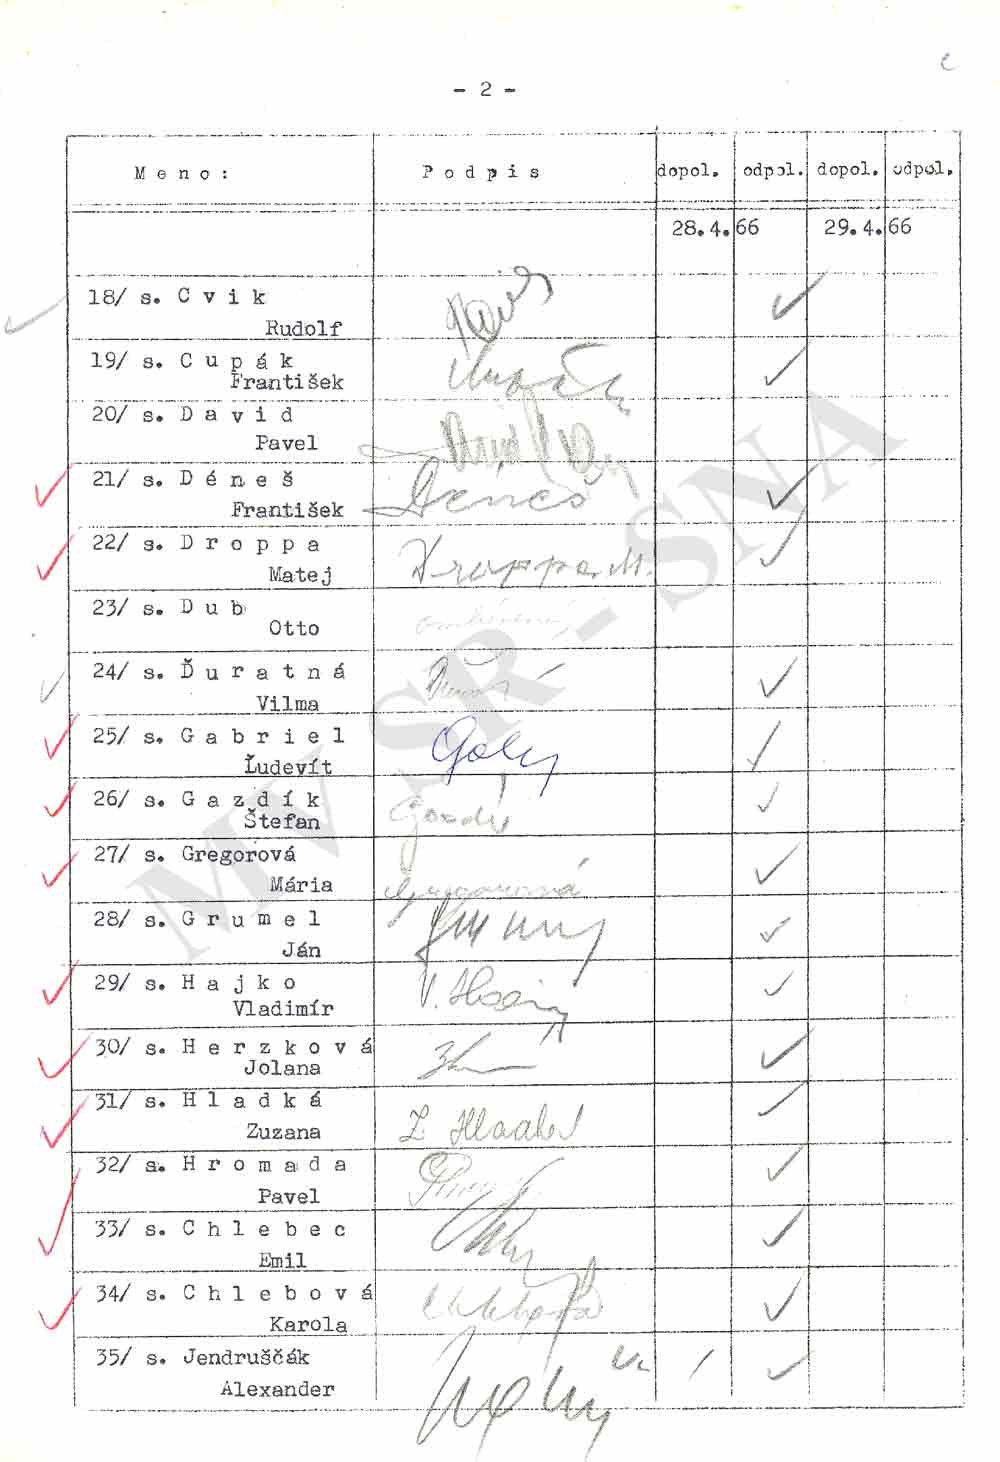 - 2 -
Meno: Podpis dopol. odpol. dopol. odpol.
28.4.66 29.4.66
18/ s. Cvik
Rudolf
19/ s. Cupák
František
20/ s. David
Pavel
21/ s. Déneš Deneš
František
22/ s. Droppa Droppa M.
Matej
23/ s. Dub
Otto
24/ s. Ďuratná
Vilma
25/ s. Gabriel
Ľudevít
26/ s. Gazdík
Štefan
27/ s. Gregorová
Mária Gregorová
28/ s. Grumel
Ján
29/ s. Hajko
Vladimír
30/ s. Herzková
Jolana
31/ s. Hladká
Zuzana
32/ s. Hromada
Pavel
33/ s. Chlebec
Emil
34/ s. Chlebová
Karola
35/ s. Jendruščák
Alexander
MV SR - SNA